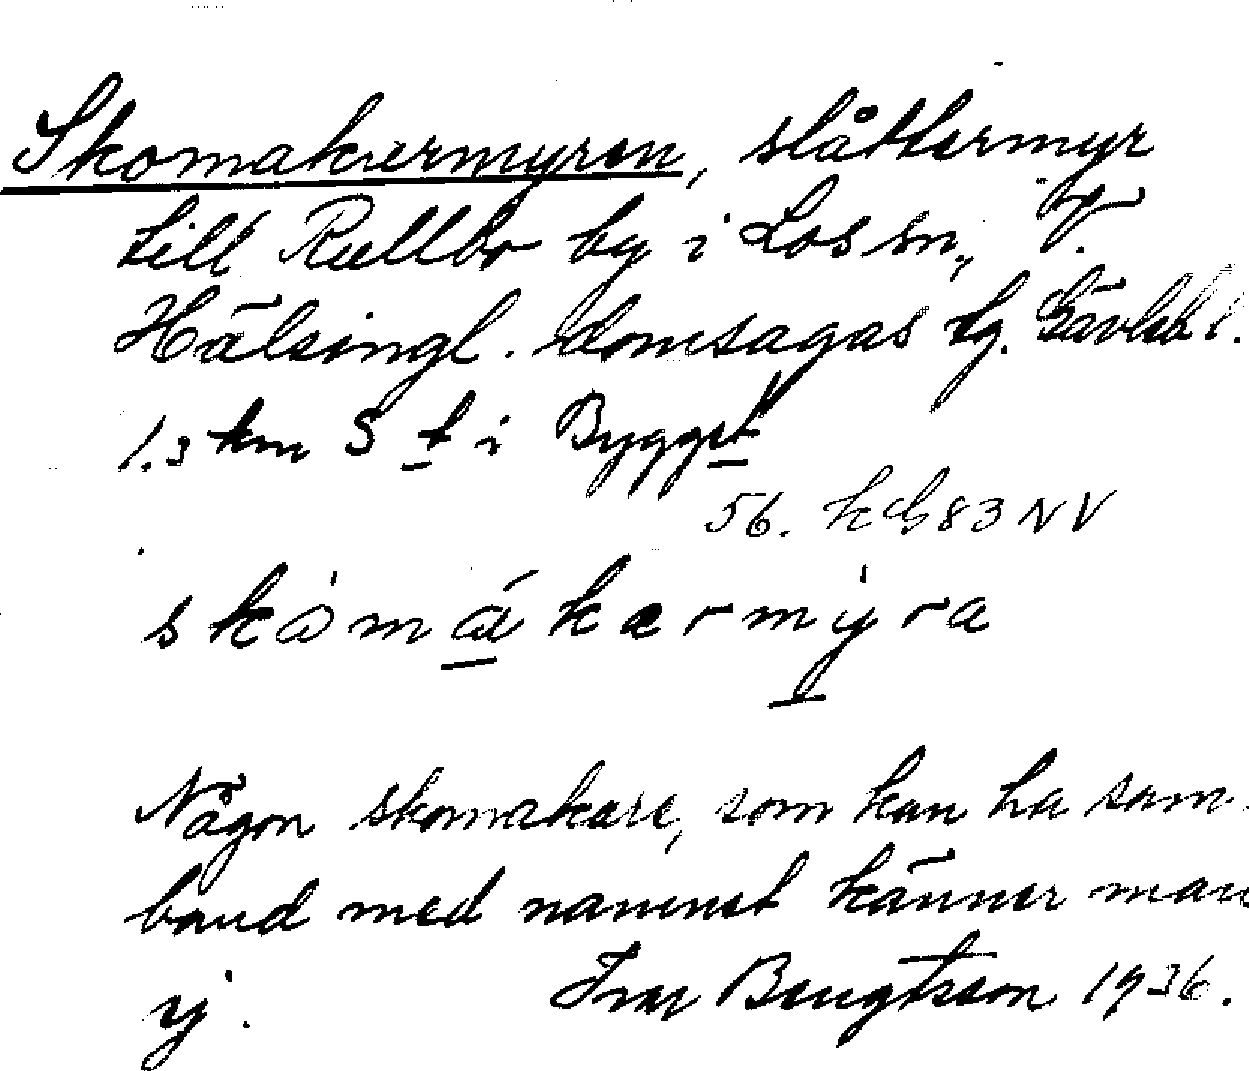 Skomakermyren, slåttermyr
till Rullbo by i Los sn, V.
Hälsingl. domsagas tg. Gävleb. l.
1.3 km S t i Bygget
56. kG 83 NV
skòmákermỳra
Någon skomakare, som kan ha sam-
band med namnet känner man
ej. Ivar Bengtsson 1936.